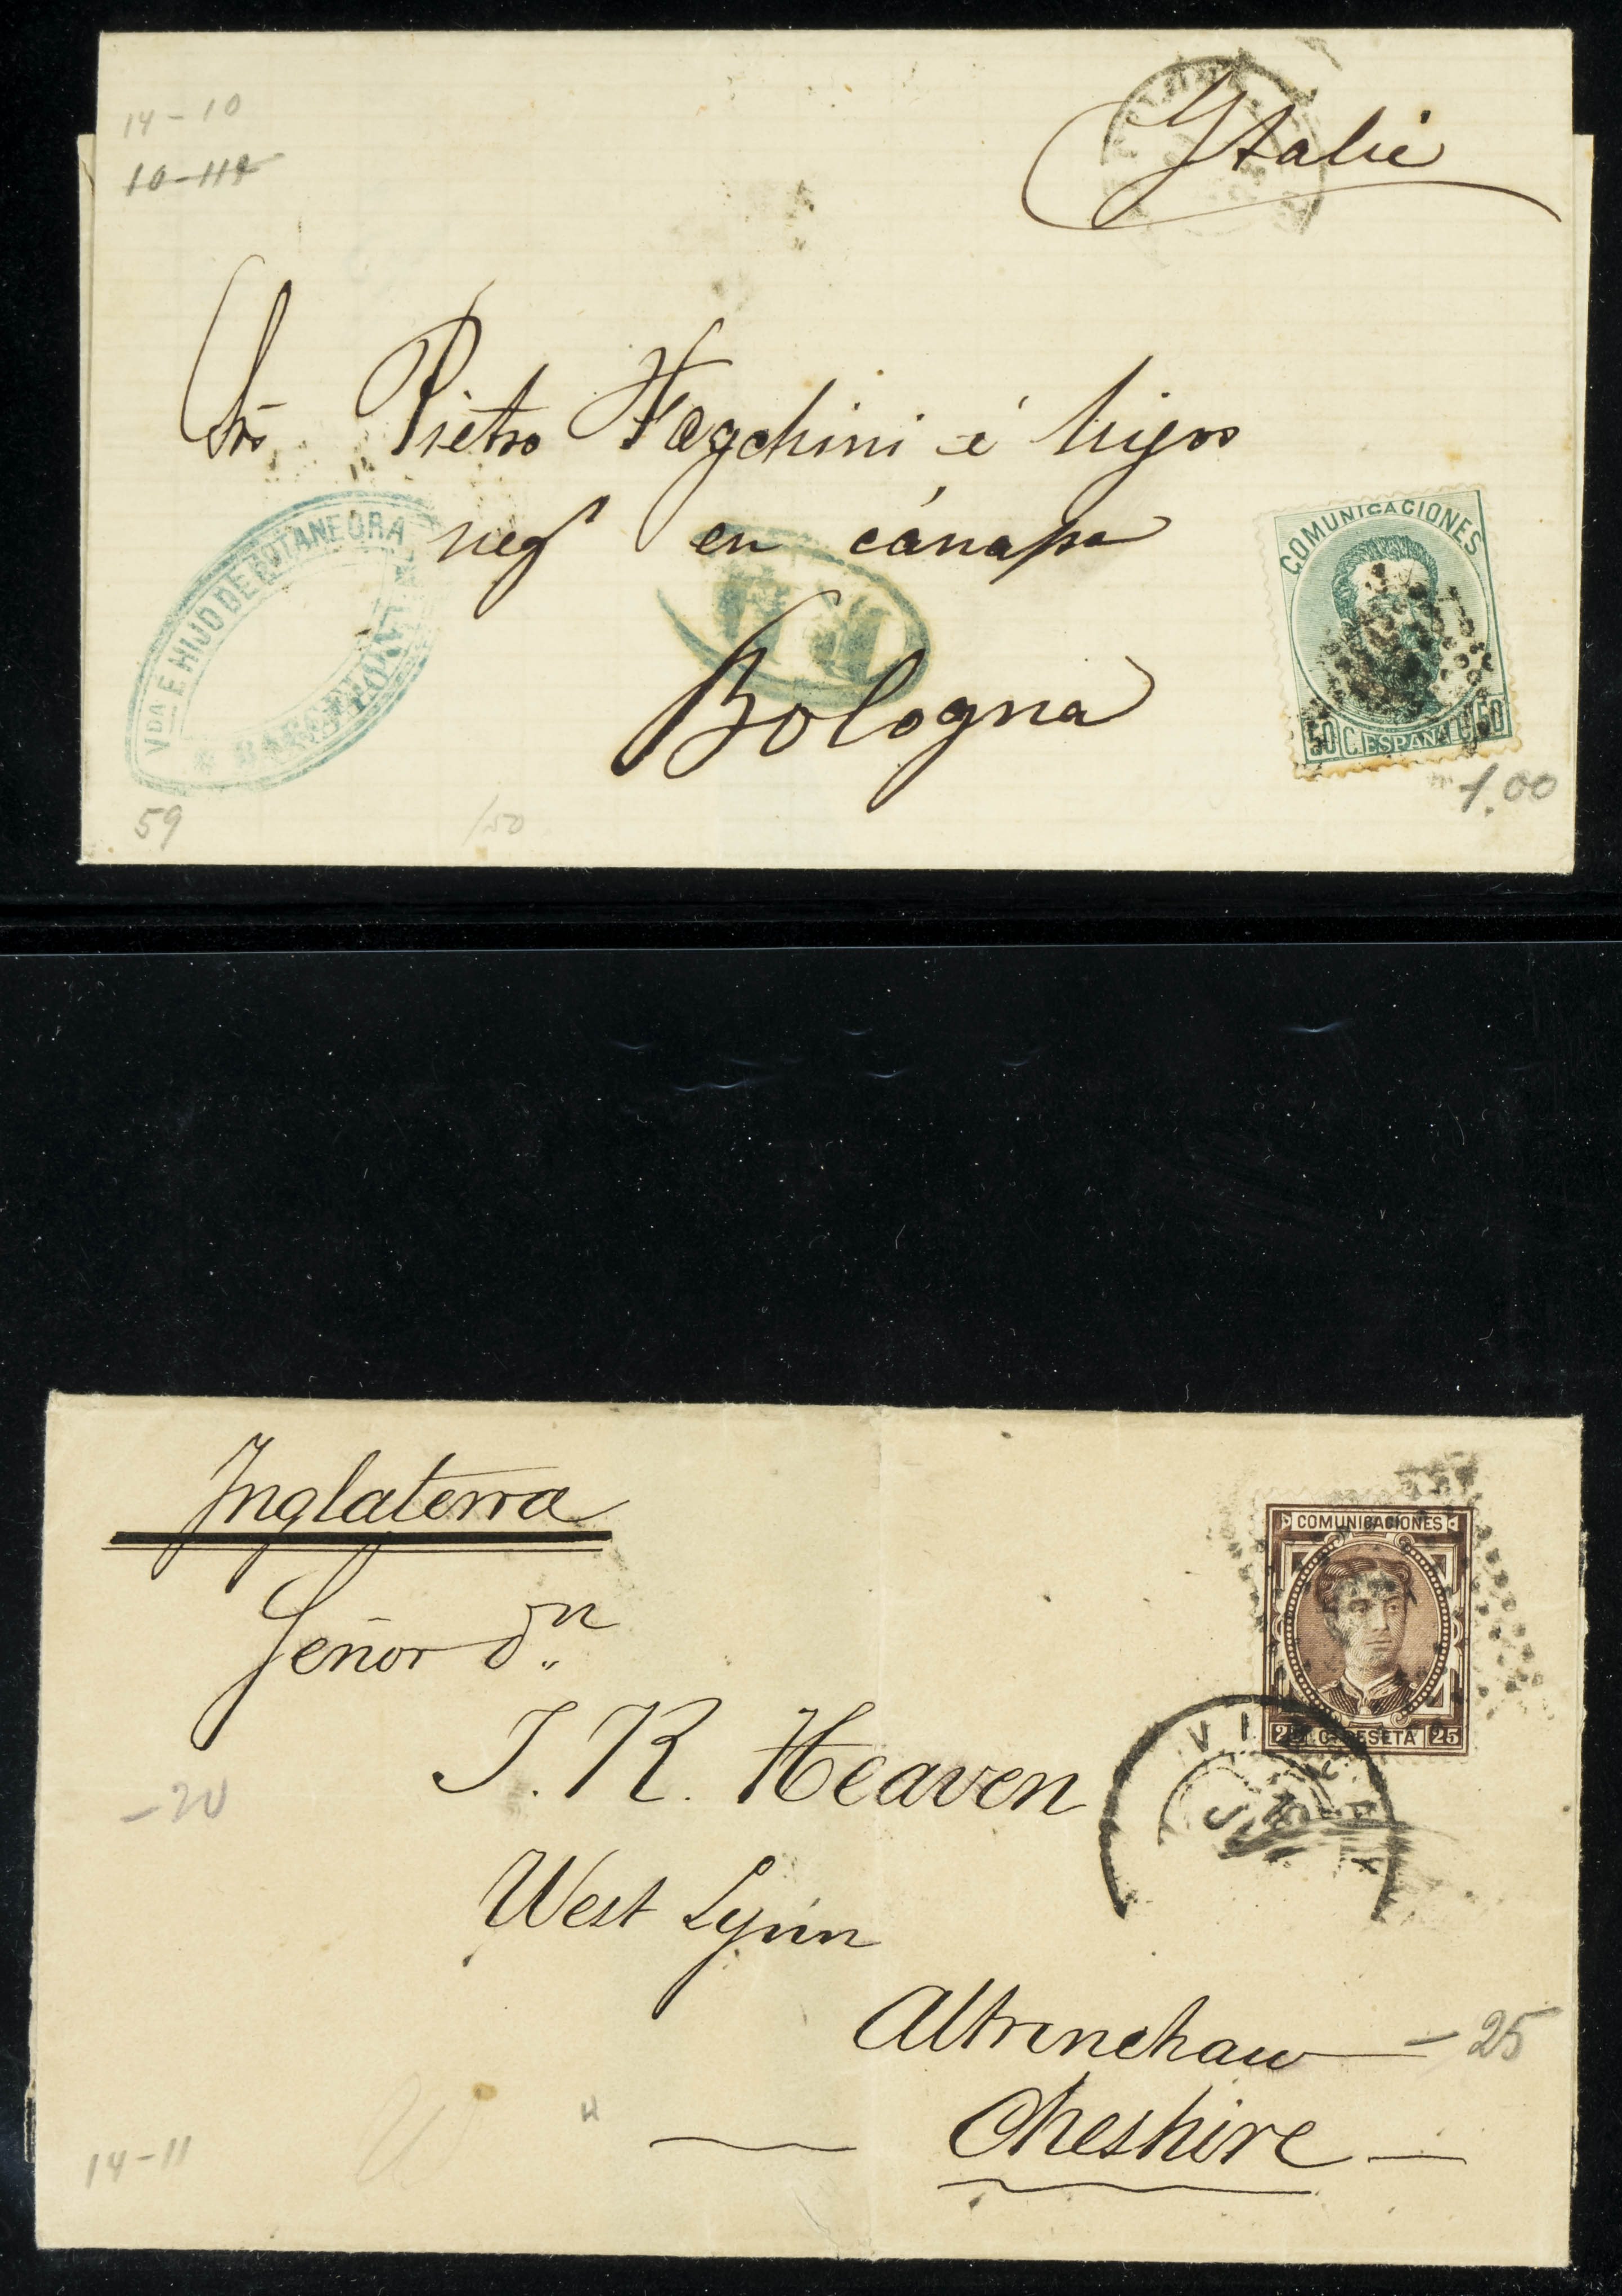 14-10
10-114
Italie
Srs Pietro Facchini é hijos
negs en cánapa
Bologna
VDA É HIJO DE
BARCELONA
P.D.
COMUNICACIONES
50 C. ESPAÑA 50
1.00
59
1/50
Inglaterra
Señor Dn
J. R. Heaven
West Lynn
Altrincham
Cheshire
COMUNICACIONES
25 C. PESETA 25
-20
-25
14-11